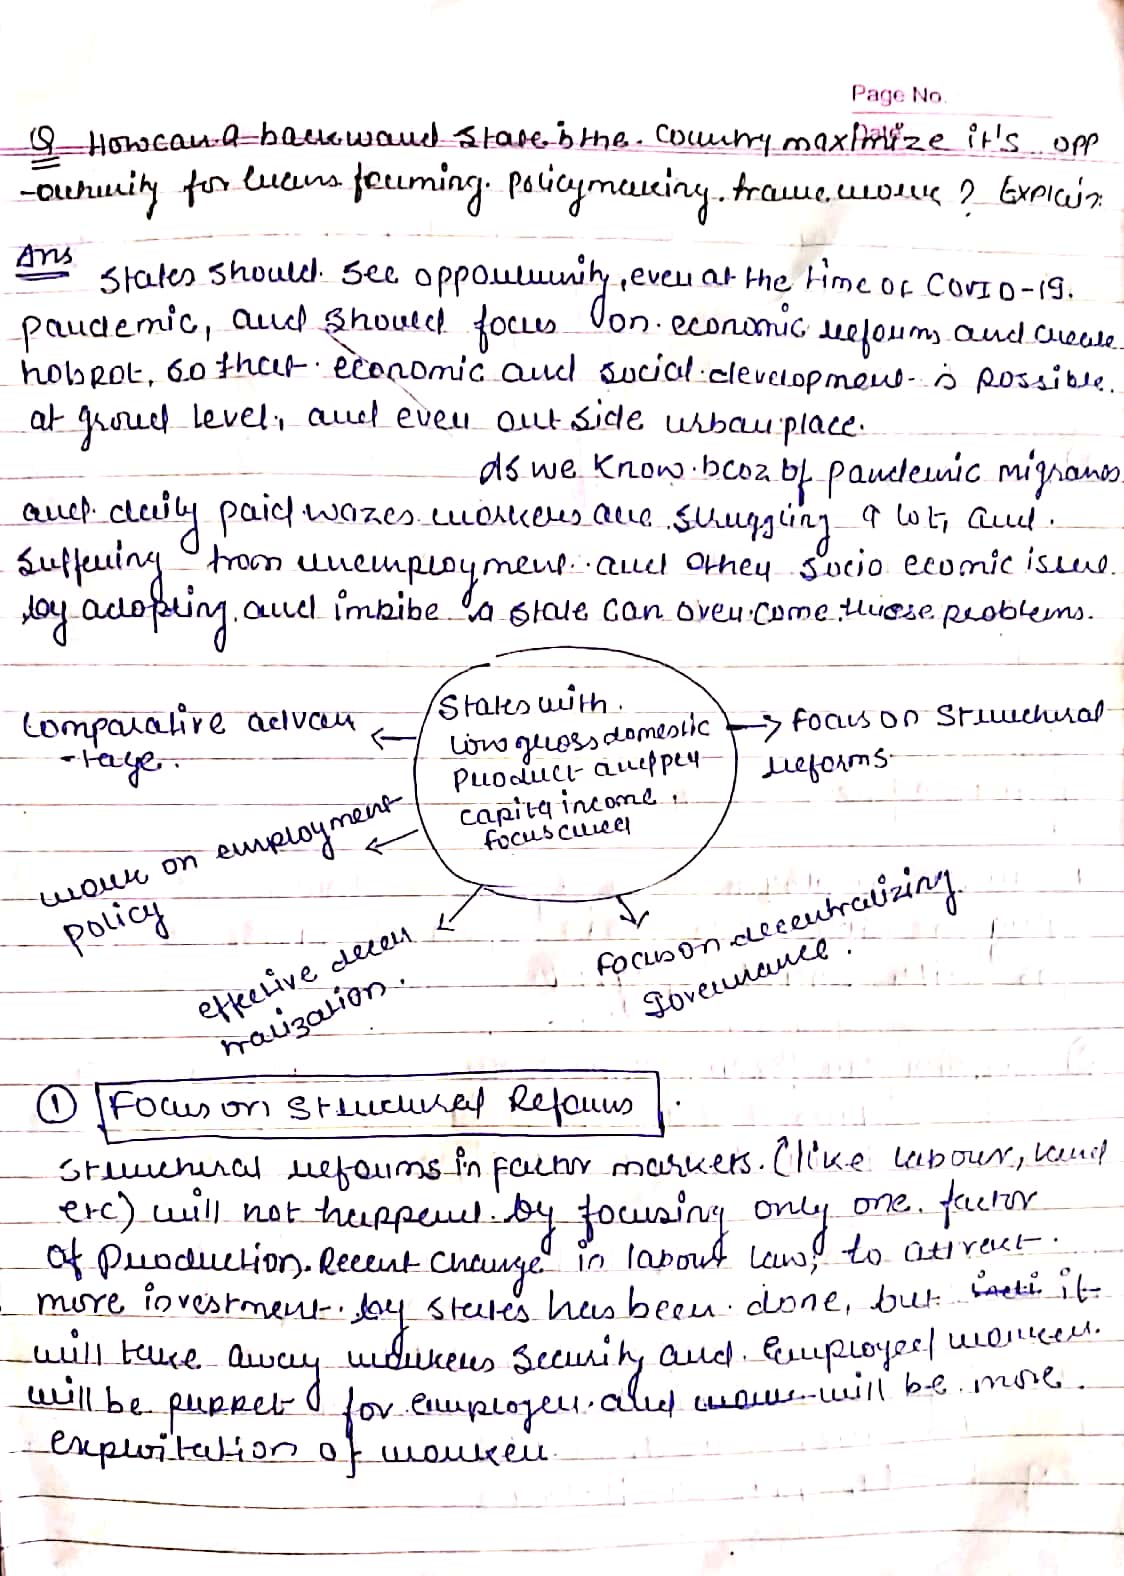 Page No.
Q How can a backward state in the country maximize it's opp
-ortunity for means forming policymaking framework ? Explain
Ans
States should see opportunity, even at the time of COVID-19.
pandemic, and should focus on economic reforms and create
hotspot, so that economic and social development is possible.
at groud level, and even out side urban place.
As we know bcoz of pandemic migrants
and daily paid wazes workers are struggling a lot, and
suffering from unemployment and other socio ecomic issue.
by adopting and imbibe a state can overcome these problems.
States with
low gross domestic
product and per
capita income,
focus area
Comparative advan
-tage.
focus on Structural
reforms
work on employment
policy
effective decen
tralization.
focus on decentralizing
governance.
① Focus on Structural Reforms
Structural reforms in factor markets (like labour, land
etc) will not happend by focusing only one factor
of production. Recent change in labour law, to attract
more investment by states has been done, but it
will take away workers security and Employee/worker
will be puppet for employer and will be more
expoitation of worker